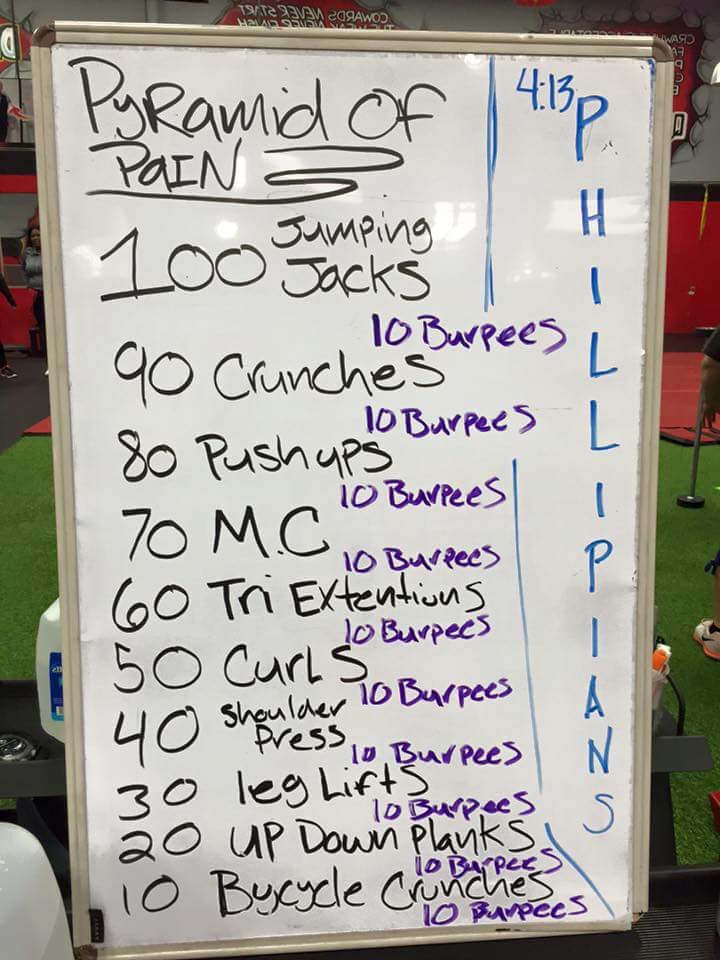 COWARDS NEVER START
Pyramid Of
Pain
100 Jumping
Jacks
10 Burpees
90 Crunches
10 Burpees
80 Push ups
10 Burpees
70 M.C
10 Burpees
60 Tri Extentions
10 Burpees
50 Curls
10 Burpees
40 Shoulder
Press
10 Burpees
30 leg Lifts
10 Burpees
20 UP Down Planks
10 Burpees
10 Bycycle Crunches
10 Burpees
4:13
PHILLIPIANS